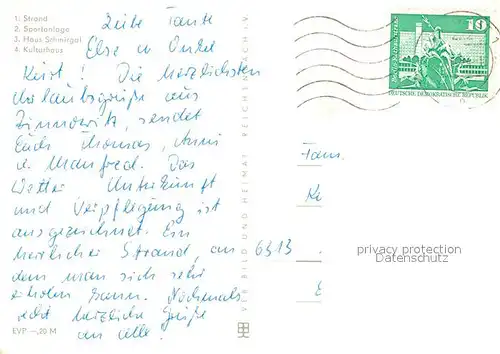 1: Strand
2. Sportanlage
3. Haus Schmirgal
4. Kulturhaus
Liebe Tante
Else u Onkel
Kurt! Die herzlichsten
Urlaubsgrüße aus
Zinnowitz, sendet
Euch Thomas, Anni
u. Manfred. Das
Wetter Unterkunft
und Verpflegung ist
ausgezeichnet. Ein
herrlicher Strand, an
dem man sich sehr
erholen kann. Nochmals
recht herzliche Grüße
an alle.
EVP –,20 M
VEB BILD UND HEIMAT REICHENBACH I. V.
10
DEUTSCHE DEMOKRATISCHE REPUBLIK
Fam.
6313
privacy protection
Datenschutz